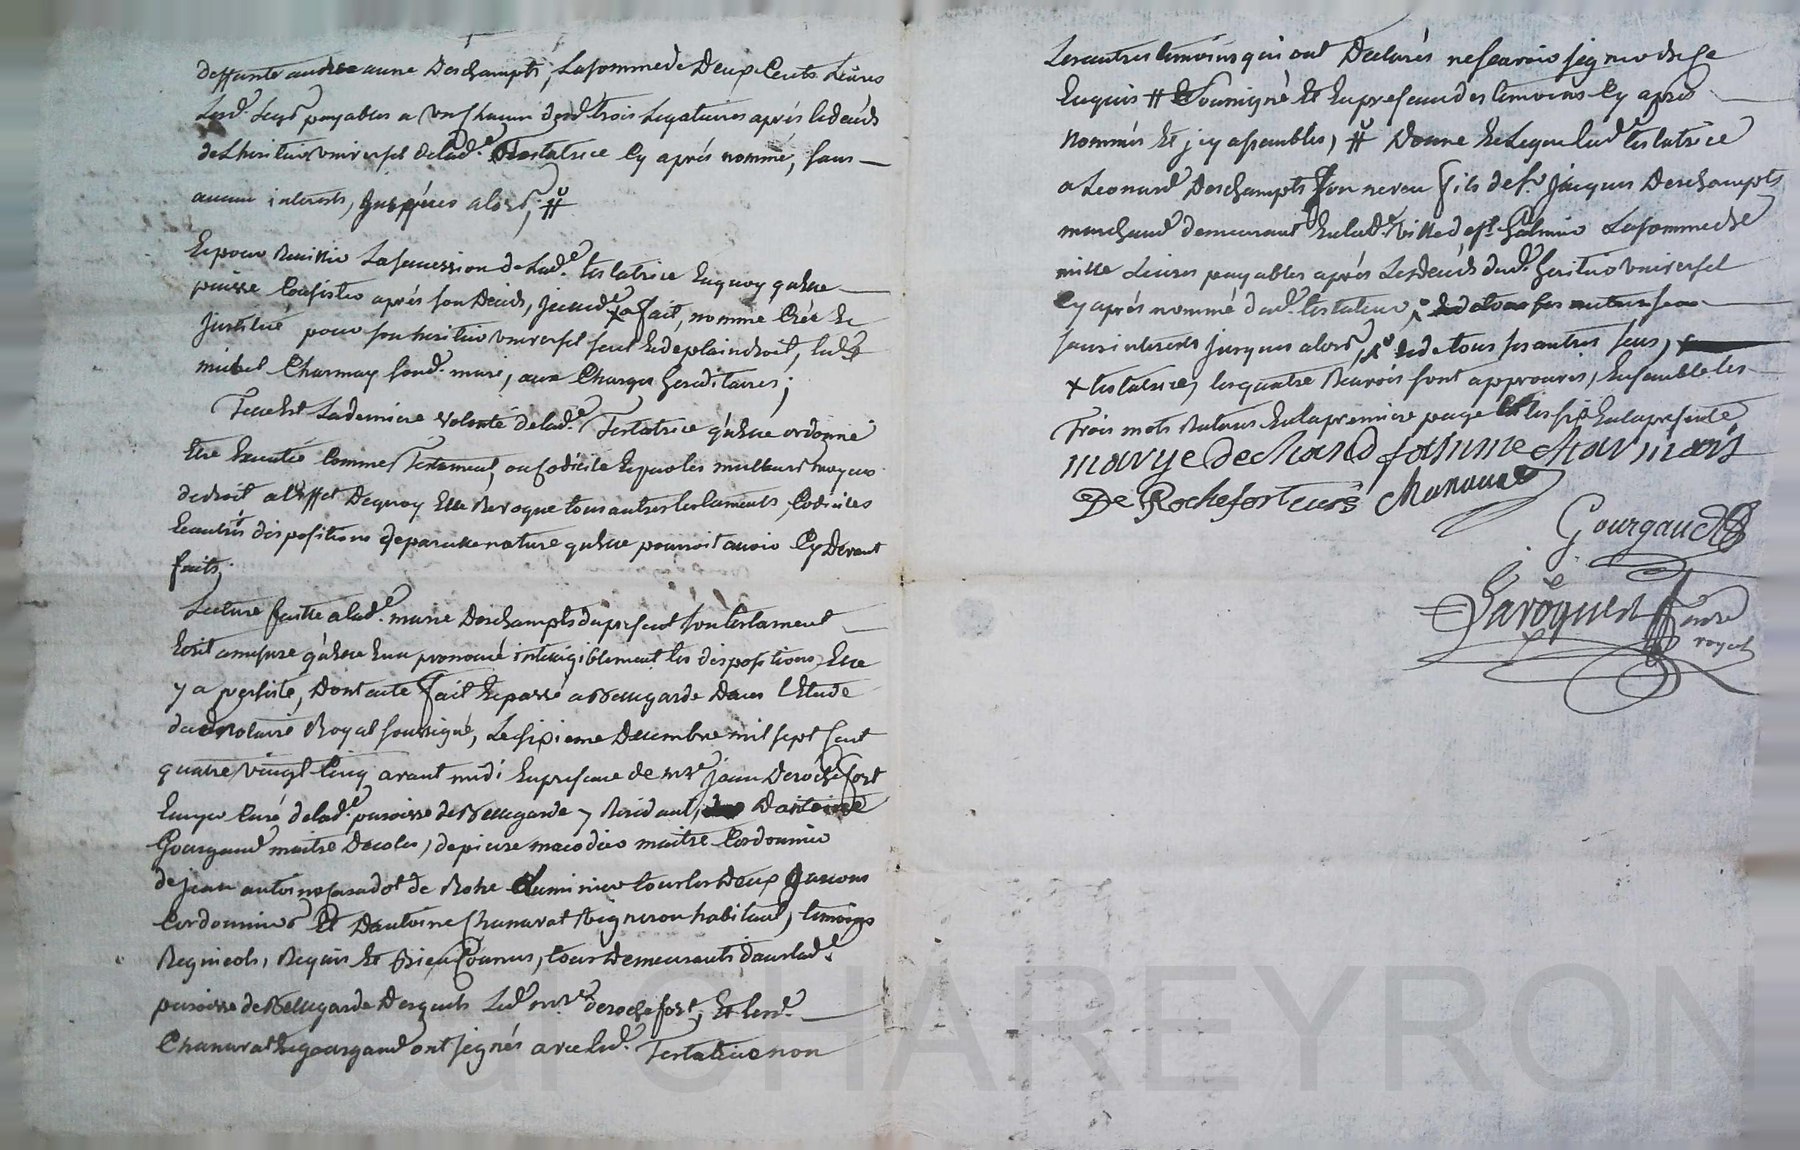 deffunte andrée anne Deschampts, La somme de Deux Cents Livres
Lesd. Legs payables a un chacun desd. trois Legataires après le decès
de Lheritier universel de lad.e Testatrice Cy après nommé, sans
aucun interests, jusques alors, #
Et pour Recuillir La succession de Lad.e testatrice En quoy qu'elle
puisse Consister après son Decès, jcelle a fait, nomme Crée Et
Justitue pour son heritier universel seul Et de plain droit, led.
michel Charmay sond. mari, aux Charges hereditaires;
Telle Est La derniere volonté de lad.e Testatrice qu'elle ordonne
Etre Executée Comme Testament, ou Codicile Et par les meilleurs moyens
de droit a L'effet De quoy Elle Revoque tous autres testaments, Codiciles
Et autres dispositions de pareille nature qu'elle pourroit avoir Cy Devant
faits;
Lecture faitte a lad.e marie Deschampts du present son testament
Ecrit a mesure qu'elle En a prononcé intelligiblement les dispositions, Elle
y a persisté, Dont acte fait Et passé a Bellegarde Dans l'Etude
dud. Notaire Royal soussigné, Le sixieme Decembre mil sept cent
quatre vingt Cinq avant midi En presence de m.re jean Derochefort
Ecuyer Curé de lad.e paroisse de Bellegarde y Residant, D'antoine
Gourgaud maitre Decoles, de pierre maître Cordonnier
de jean antoine de Rohe tous les Deux garçons
Cordonniers Et D'antoine Chanavat vigneron habitant, temoins
Regnicols, Requis Et Bien Connus, tous Demeurants dans lad.e
paroisse de Bellegarde Desquels Led. m.re derochefort, Et lesd.
Chanavat Et gourgaud ont signés avec lad. Testatrice non
Les autres temoins qui ont Declarés ne sçavoir signer de ce
Enquis # soussigné Et En presence des temoins Cy après
Nommés Et jcy assemblés, # Donne Et Legue lad.e testatrice
a Leonard Deschampts son neveu fils de S.r Jacques Deschampts
marchand demeurant En lad.e ville de S.t Galmier La somme de
mille Livres payables après Le decès dud. heritier universel
Cy après nommé dud. testateur,
sans interests jusques alors, # Et de tous ses autres Legs,
x testatrice, les quatre Renvois sont approuvés, Ensemble les
Trois mots Raturés En la premiere page Et les six En la presente
marye dechand famme Charmais
De Rochefort curé Chanavat
Gourgaud
Laroque
Nore
royal
Pascal CHAREYRON